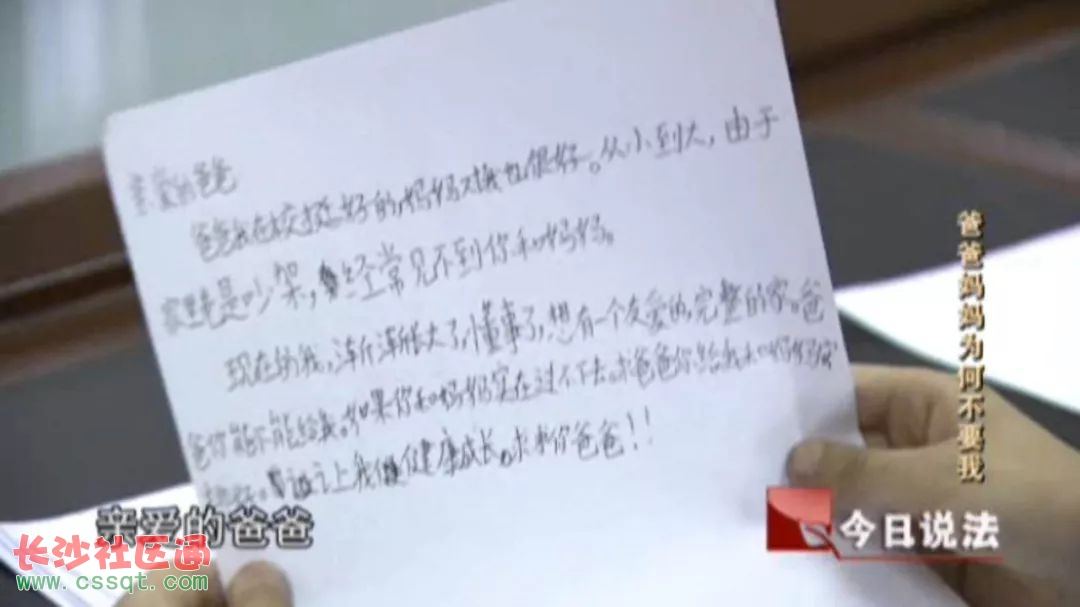 亲爱的爸爸
爸爸我在校挺好的,妈妈对我也很好。从小到大,由于
家里老是吵架,经常见不到你和妈妈。
现在的我,渐渐长大了,懂事了,想有一个友爱的,完整的家。爸
爸你能不能给我。如果你和妈妈实在过不下去,求爸爸你给我和妈妈
让我健康成长。求求你爸爸!!
亲爱的爸爸
爸爸妈妈为何不要我
今日说法
长沙社区通
www.cssqt.com